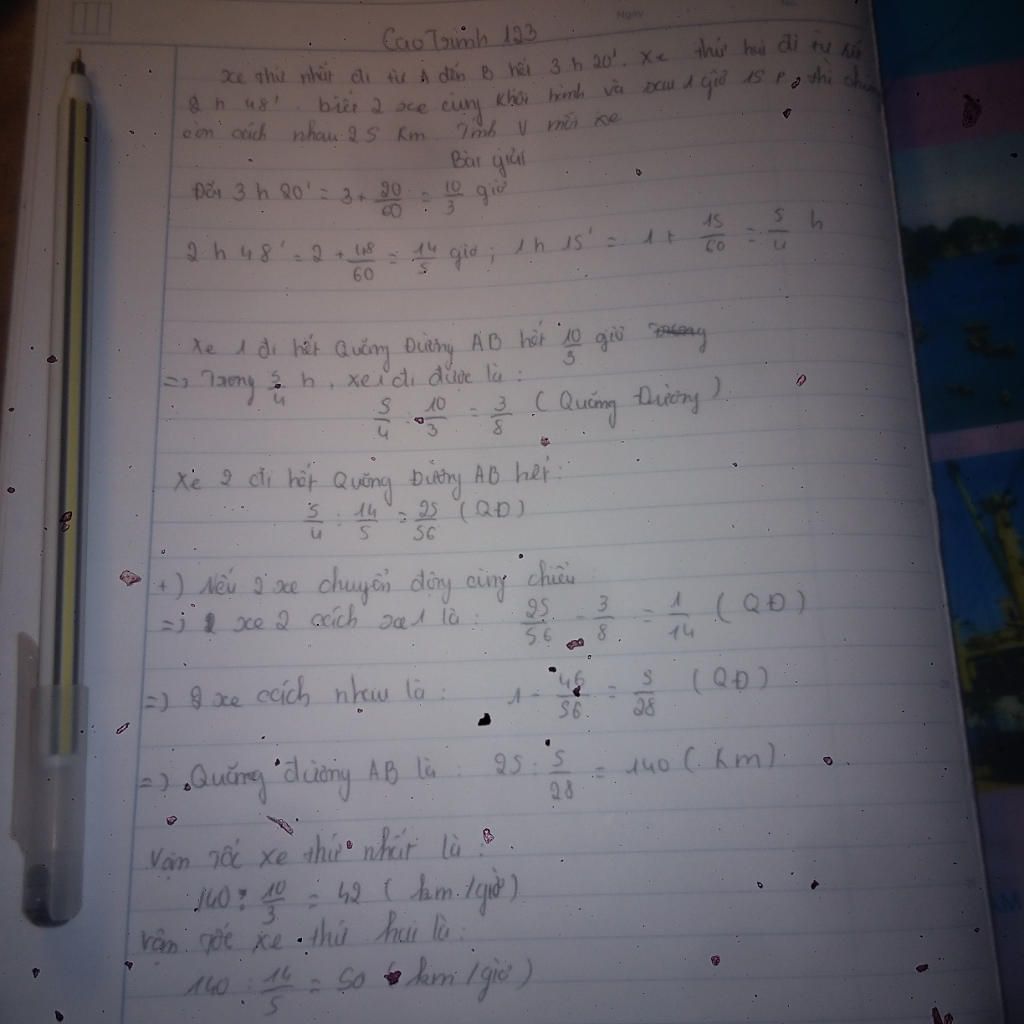 Cao Trinh 123
Xe thứ nhất đi từ A đến B hết 3 h 20'. Xe thứ hai đi từ
2 h 48' biết 2 xe cùng khởi hành và sau 1 giờ 15 P, thì chúng
còn cách nhau 25 km Tính V mỗi xe
Bài giải
Đổi 3 h 20' = 3 + 20/60 = 10/3 giờ
2 h 48' = 2 + 48/60 = 14/5 giờ ; 1 h 15' = 1 + 15/60 = 5/4 h
Xe 1 đi hết Quãng Đường AB hết 10/3 giờ
=> Trong 5/4 h, xe 1 đi được là :
5/4 : 10/3 = 3/8 ( Quãng Đường )
Xe 2 đi hết Quãng Đường AB hết :
5/4 : 14/5 = 25/56 ( QĐ )
+) Nếu 2 xe chuyển động cùng chiều
=> xe 2 cách xe 1 là : 25/56 - 3/8 = 1/14 ( QĐ )
=> 2 xe cách nhau là : 1 - 46/56 = 5/28 ( QĐ )
=> Quãng đường AB là : 25 : 5/28 = 140 ( km )
Vận tốc xe thứ nhất là :
140 : 10/3 = 42 ( km /giờ )
Vận tốc xe thứ hai là :
140 : 14/5 = 50 ( km /giờ )